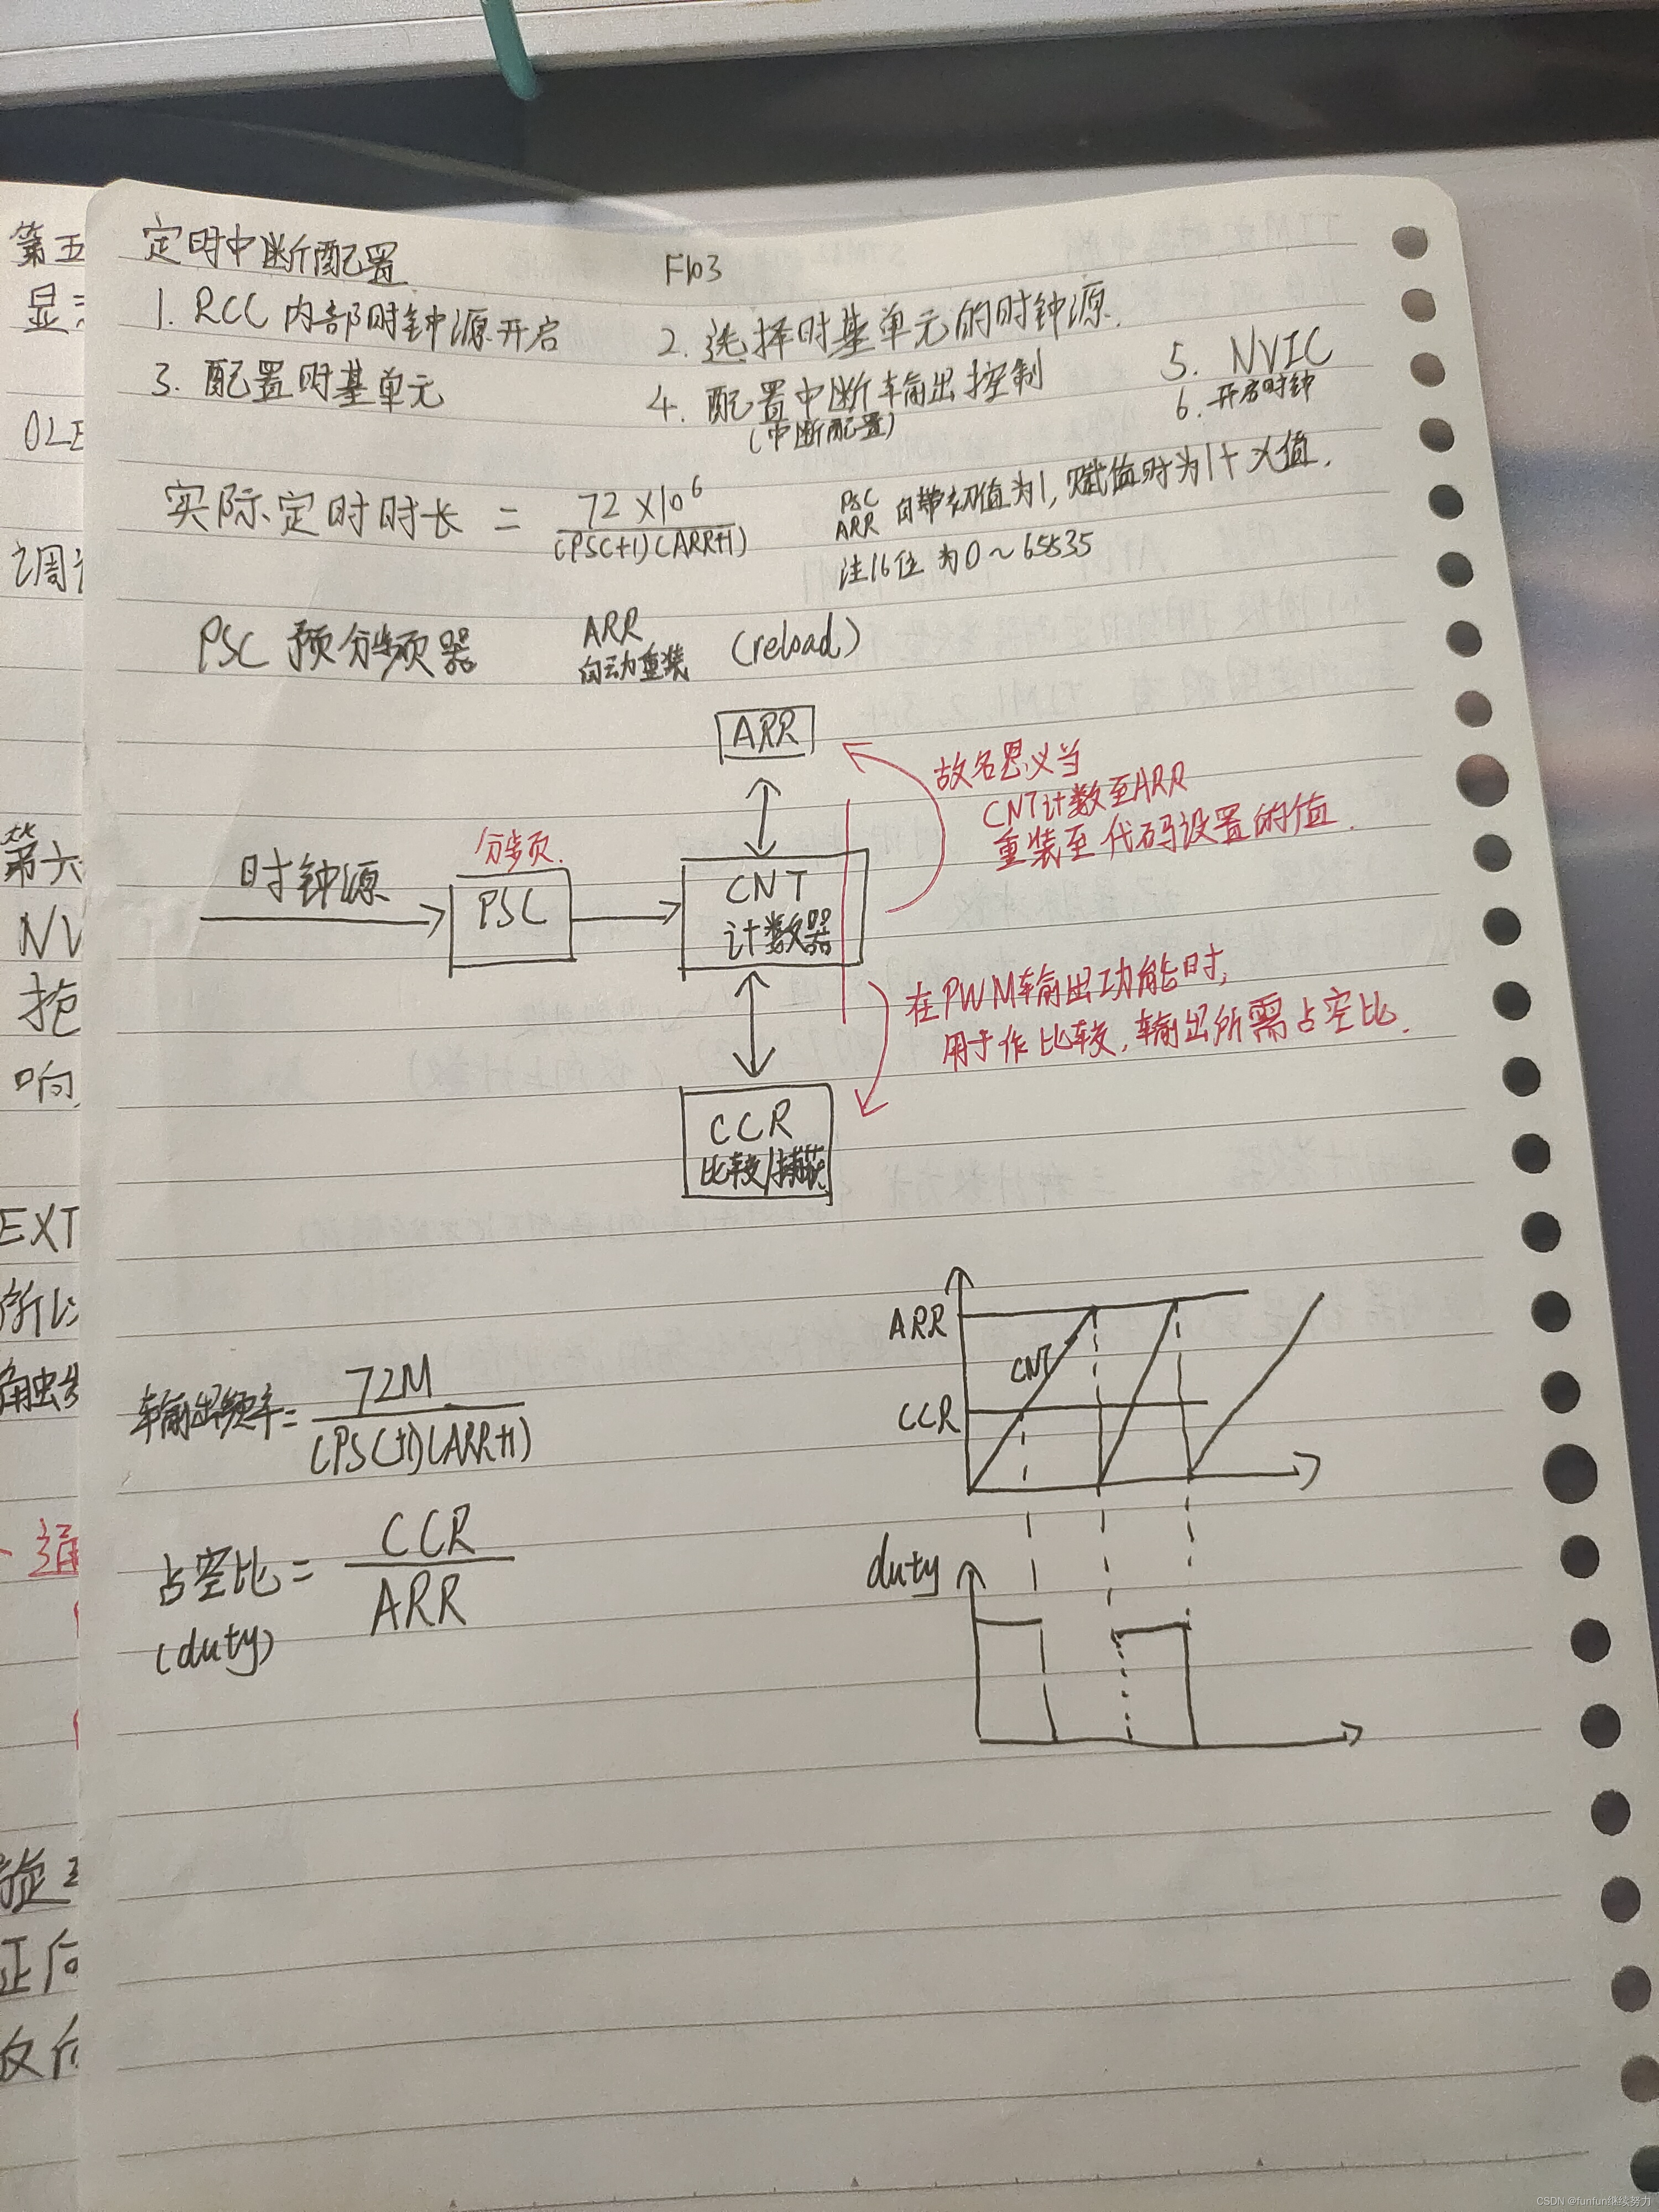 定时中断配置
F103
1. RCC 内部时钟源开启
2. 选择时基单元的时钟源.
3. 配置时基单元
4. 配置中断输出控制
(中断配置)
5. NVIC
6. 开启时钟
实际定时时长 = 72×10^6 / (PSC+1)(ARR+1)
PSC
ARR 自带初值为1, 赋值时为1+X值.
注16位 为0~65535
PSC 预分频器
ARR
自动重装
(reload)
ARR
时钟源
分频.
PSC
CNT
计数器
故名思义当
CNT计数至ARR
重装至代码设置的值.
在PWM输出功能时,
用于作比较, 输出所需占空比.
CCR
比较/捕获
输出频率= 72M / (PSC+1)(ARR+1)
占空比 = CCR / ARR
(duty)
ARR
CNT
CCR
duty
第五
显
OLE
调
第六
NV
抢
响
EXT
所以
触
通
旋
正向
反向
CSDN @funfun继续努力